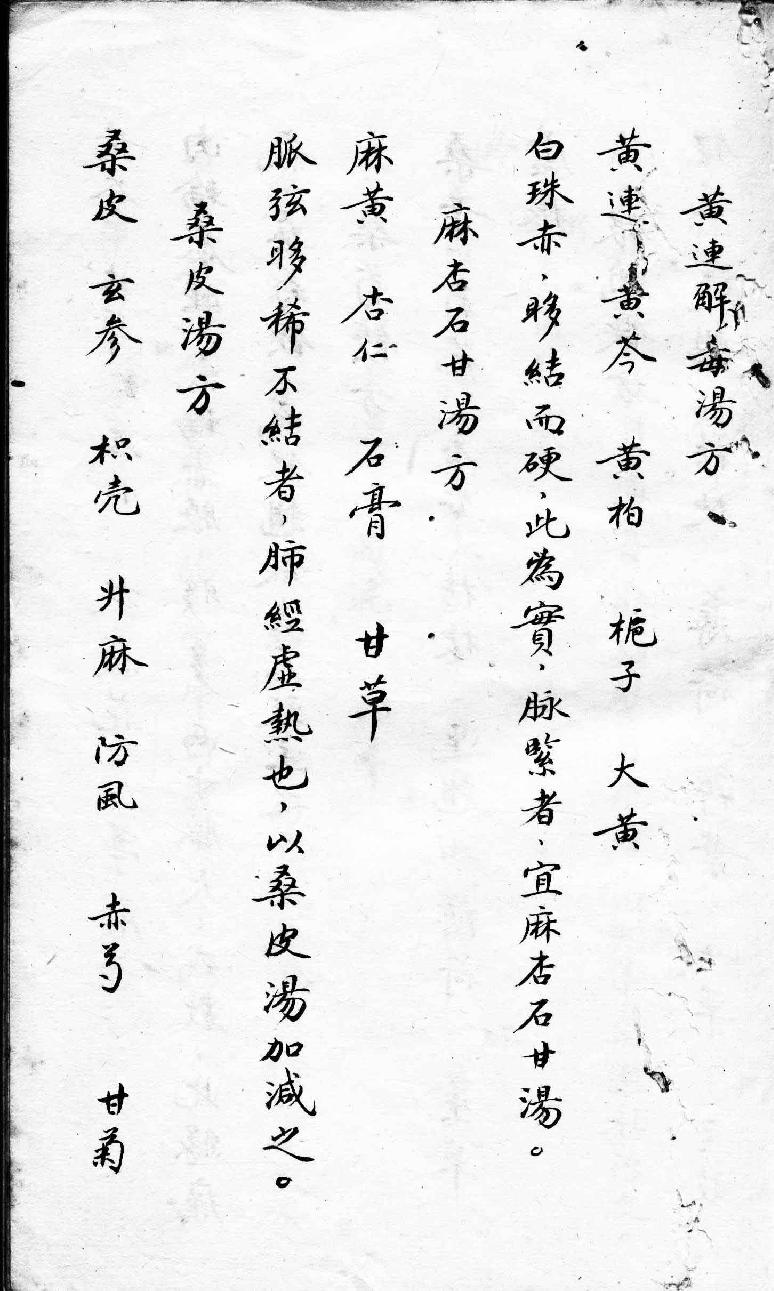 黃連解毒湯方
黃連 黃芩 黃柏 梔子 大黃
白珠赤，眵結而硬，此為實，脉緊者，宜麻杏石甘湯。
麻杏石甘湯方
麻黃 杏仁 石膏 甘草
脈弦眵稀不結者，肺經虛熱也，以桑皮湯加減之。
桑皮湯方
桑皮 玄參 枳壳 升麻 防風 赤芍 甘菊